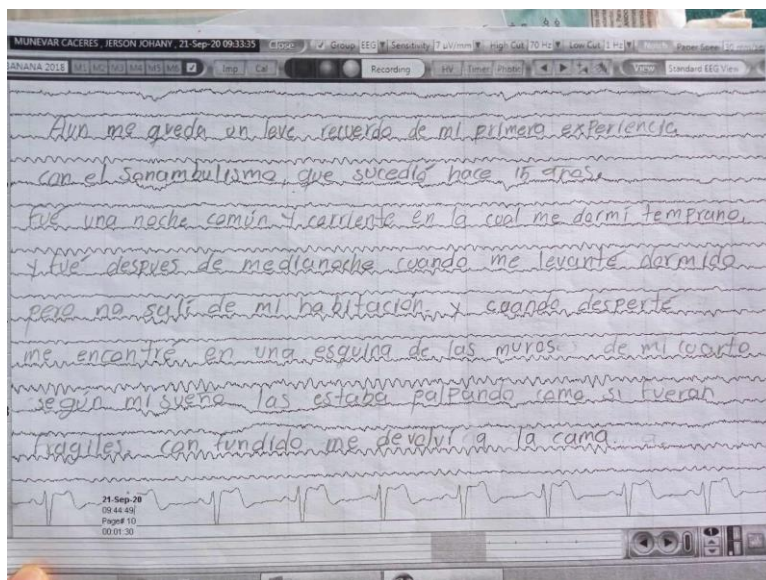 MUNEVAR CACERES , JERSON JOHANY , 21-Sep-20 09:33:35 Close Group EEG Sensitivity 7 uV/mm High Cut 70 Hz Low Cut 1 Hz Notch Paper Speed 30 mm/sec
ANANA 2018 M1 M2 M3 M4 M5 M6 Imp Cal Recording HV Timer Photic View Standard EEG View
Aun me queda un leve recuerdo de mi primera experiencia
con el Sonambulismo, que sucedió hace 15 años.
Fué una noche común y corriente en la cual me dormí temprano,
y fué despues de medianoche cuando me levanté dormido
pero no salí de mi habitación y cuando desperté
me encontré en una esquina de las muros de mi cuarto
según mi sueño las estaba palpando como si fueran
fragiles, confundido me devolví a la cama.
21-Sep-20
09:44:49
Page# 10
00:01:30
1